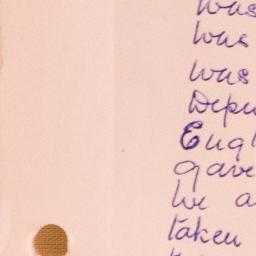 was
was
was
Depu
Engl
gave
we a
taken